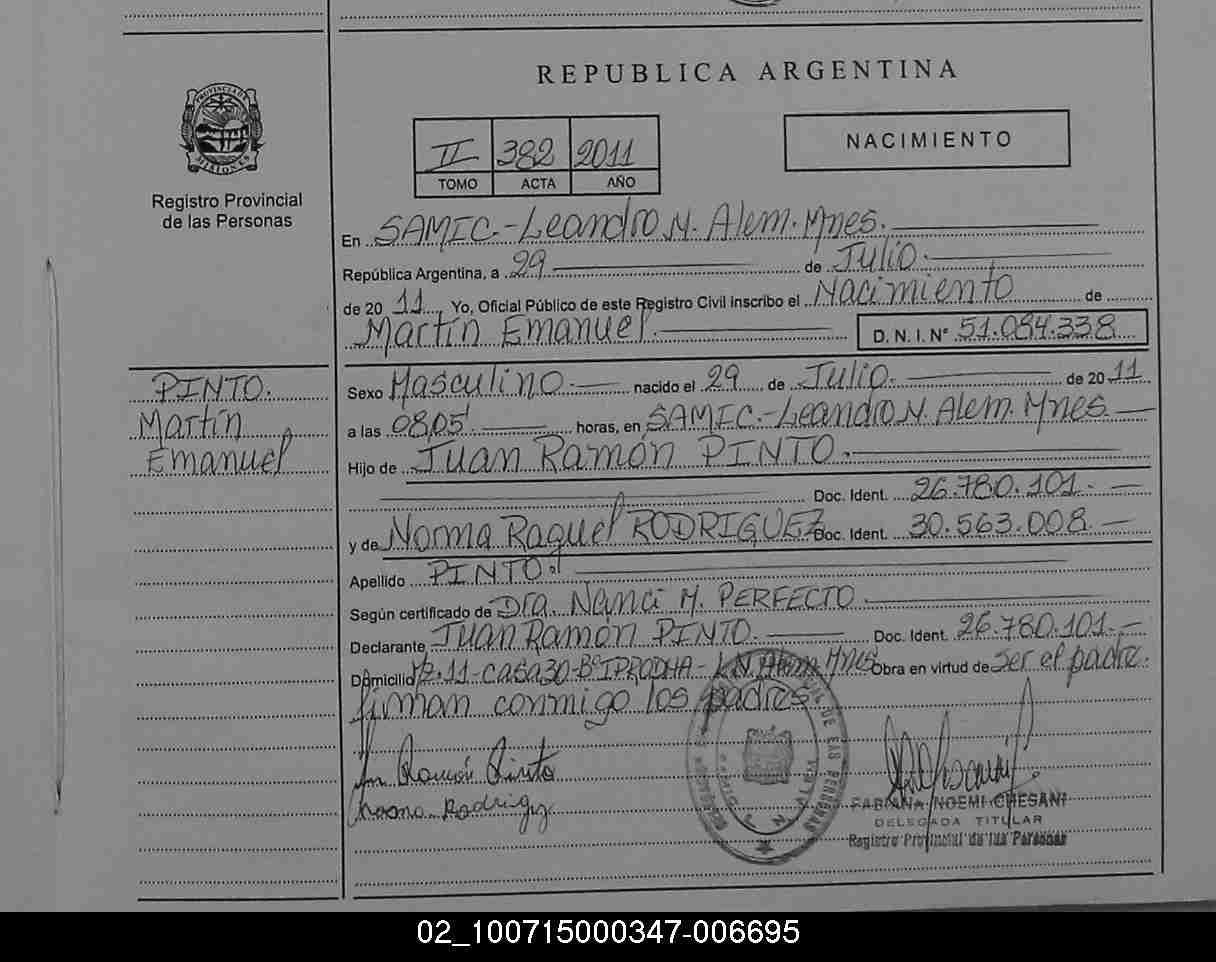 REPUBLICA ARGENTINA
PROVINCIA DE
MISIONES
Registro Provincial
de las Personas
II 382 2011
TOMO ACTA AÑO
NACIMIENTO
En SAMIC.-Leandro N. Alem. Mnes.
República Argentina, a 29 de Julio.
de 2011 Yo, Oficial Público de este Registro Civil inscribo el Nacimiento de
Martín Emanuel. D. N. I. N° 51.084.338
PINTO.
Martín
Emanuel
Sexo Masculino. nacido el 29 de Julio. de 2011
a las 08,05' horas, en SAMIC.-Leandro N. Alem. Mnes.
Hijo de Juan Ramón PINTO.
Doc. Ident. 26.780.101.
y de Norma Raquel RODRIGUEZ Doc. Ident. 30.563.008
Apellido PINTO.
Según certificado de Dra. Nanci M. PERFECTO
Declarante Juan Ramón PINTO. Doc. Ident. 26.780.101.
Domicilio Mz.11-Casa30-B° IPRODHA-L.N.Alem.Mnes Obra en virtud de ser el padre.
firman conmigo los padres.
Ramón Pinto
FABIANA NOEMI CHESANI
DELEGADA TITULAR
Registro Provincial de las Personas
02_100715000347-006695